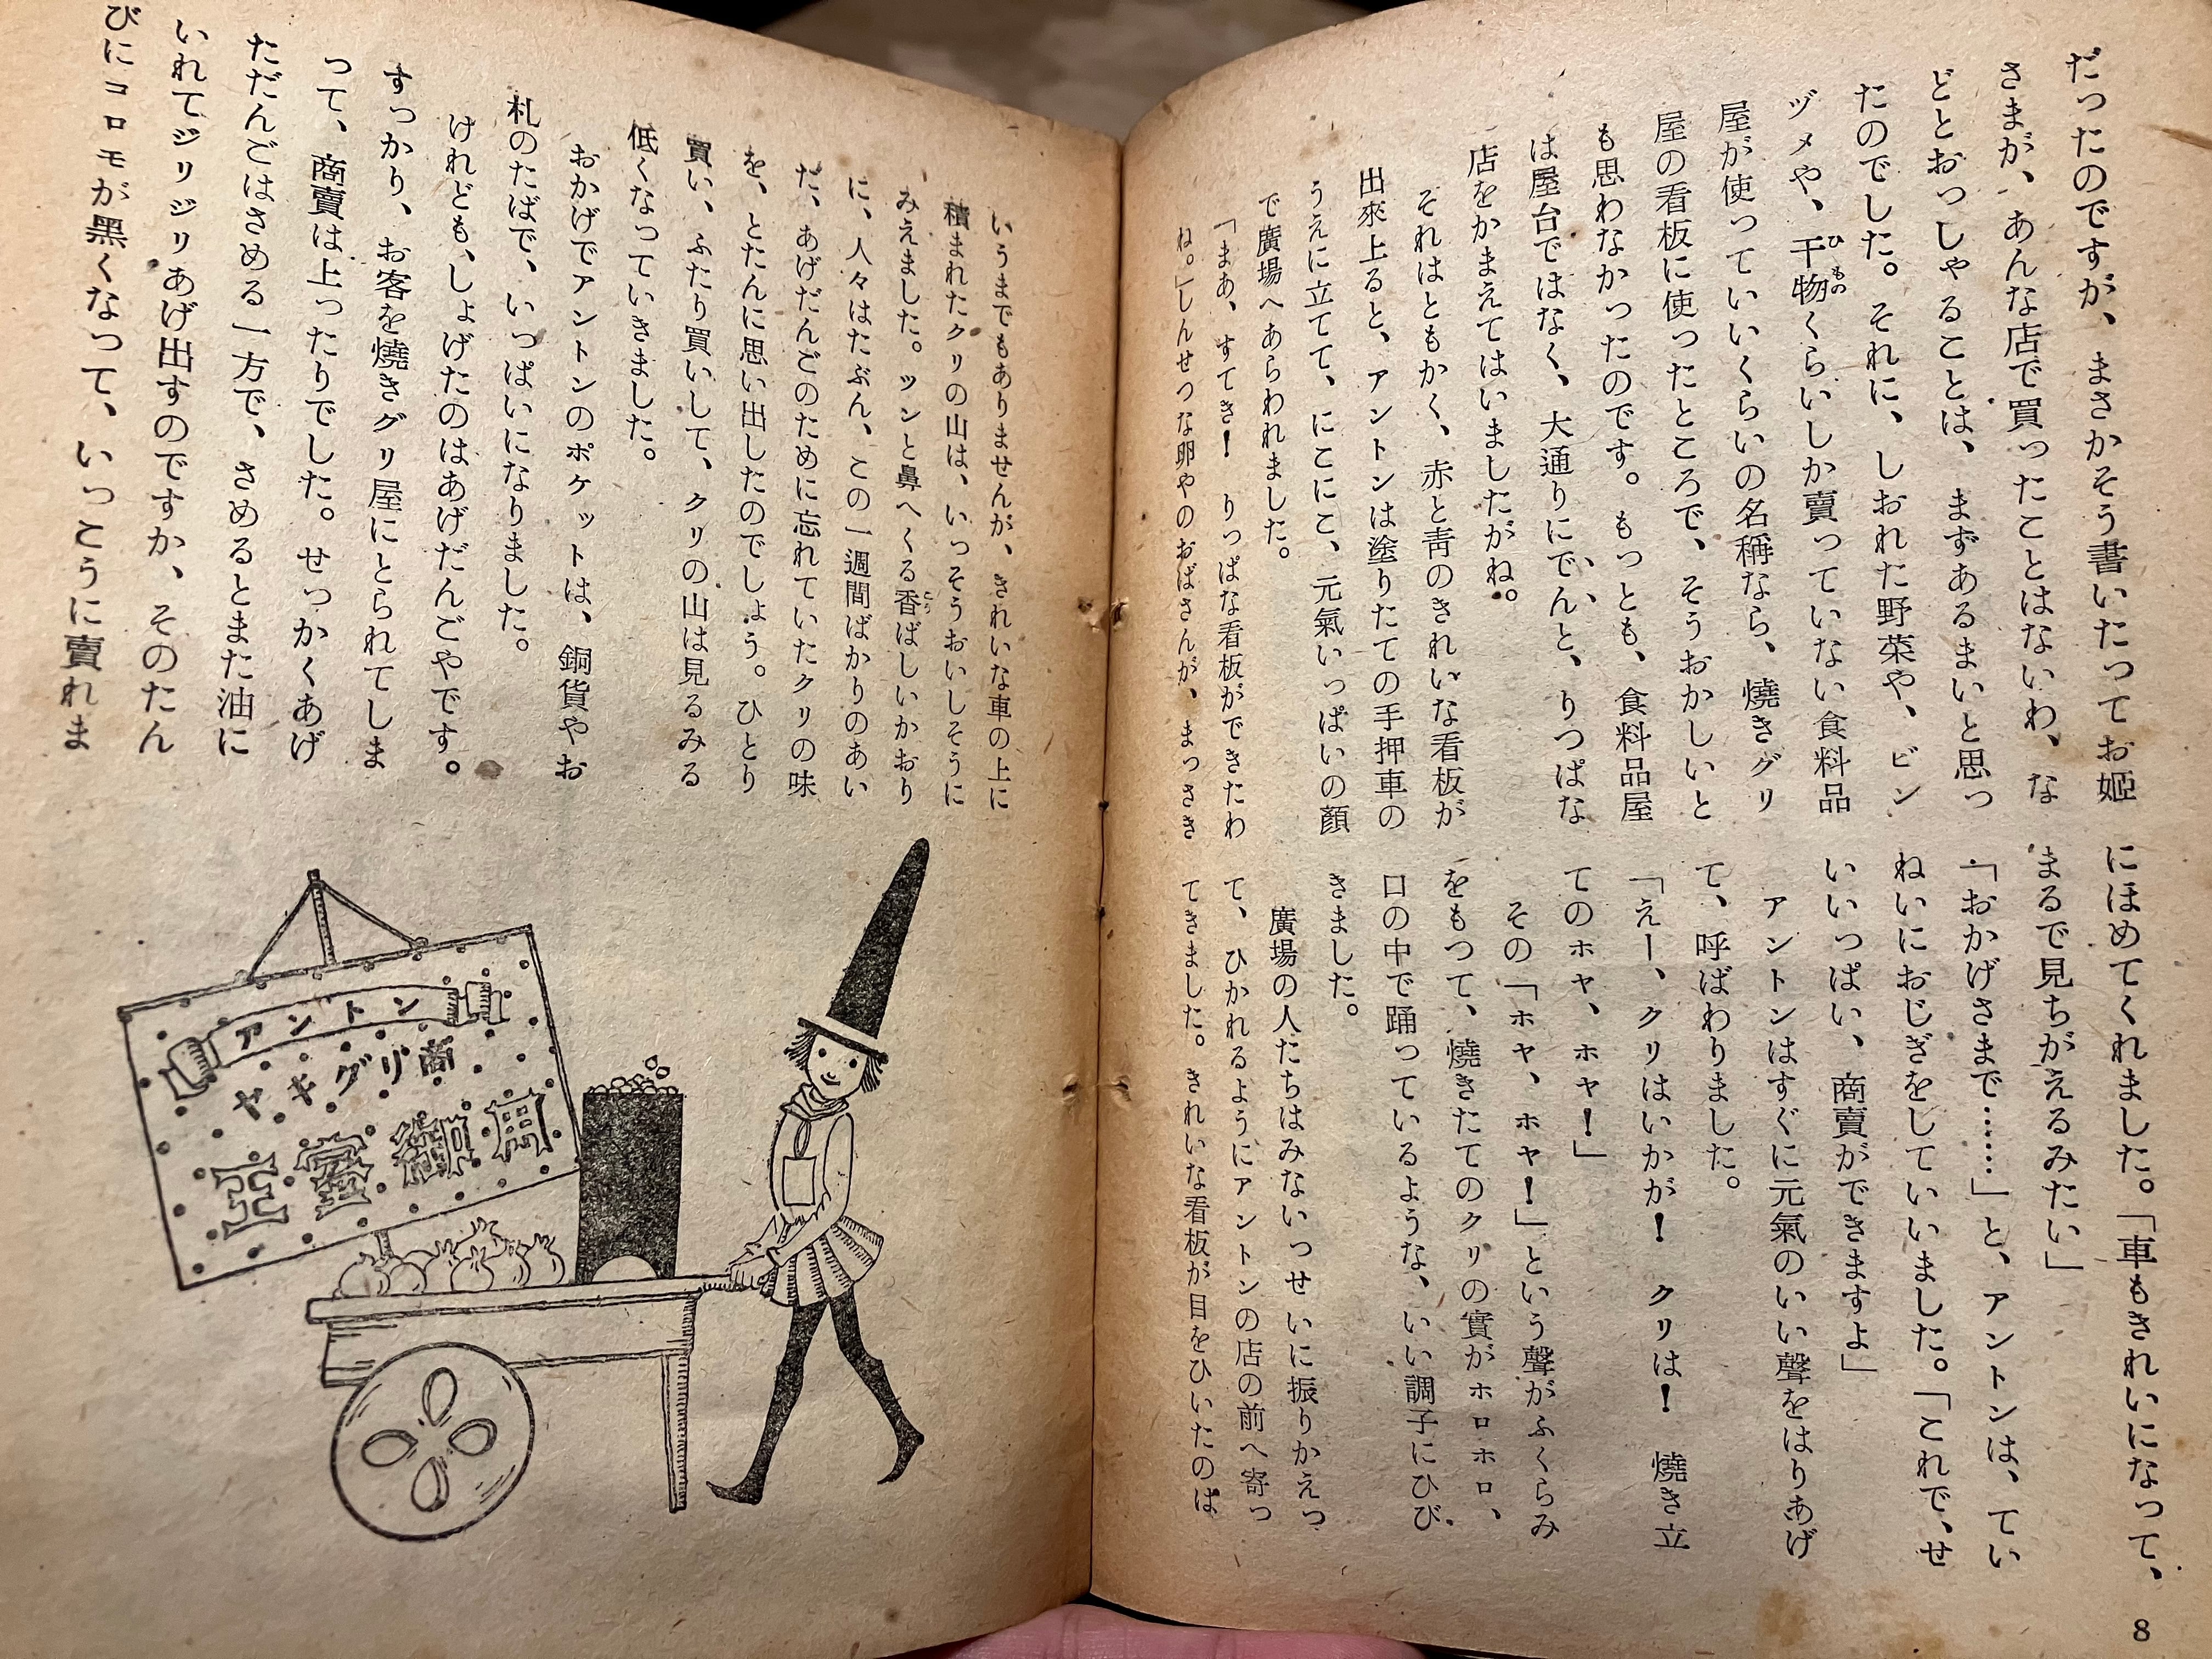 だったのですが、まさかそう書いたってお姬
さまが、あんな店で買ったことはないわ、な
どとおっしゃることは、まずあるまいと思っ
たのでした。それに、しおれた野菜や、ビン
ヅメや、干物くらいしか賣っていない食料品
ひもの
屋が使っていいくらいの名稱なら、燒きグリ
屋の看板に使ったところで、そうおかしいと
も思わなかったのです。もっとも、食料品屋
は屋台ではなく、大通りにでんと、りつぱな
店をかまえてはいましたがね。
それはともかく、赤と靑のきれいな看板が
出來上ると、アントンは塗りたての手押車の
うえに立てて、にこにこ、元氣いっぱいの顔
で廣場へあらわれました。
「まあ、すてき! りっぱな看板ができたわ
ね。」しんせつな卵やのおばさんが、まっさき
にほめてくれました。「車もきれいになって、
まるで見ちがえるみたい」
「おかげさまで……」と、アントンは、てい
ねいにおじぎをしていいました。「これで、せ
いいっぱい、商賣ができますよ」
アントンはすぐに元氣のいい聲をはりあげ
て、呼ばわりました。
「えー、クリはいかが! クリは! 燒き立
てのホヤ、ホヤ!」
その「ホヤ、ホヤ!」という聲がふくらみ
をもつて、燒きたてのクリの實がホロホロ、
口の中で踊っているような、いい調子にひび
きました。
廣場の人たちはみないっせいに振りかえっ
て、ひかれるようにアントンの店の前へ寄っ
てきました。きれいな看板が目をひいたのは
8
いうまでもありませんが、きれいな車の上に
積まれたクリの山は、いっそうおいしそうに
みえました。ツンと鼻へくる香ばしいかおり
こう
に、人々はたぶん、この一週間ばかりのあい
だ、あげだんごのために忘れていたクリの味
を、とたんに思い出したのでしょう。ひとり
買い、ふたり買いして、クリの山は見るみる
低くなっていきました。
おかげでアントンのポケットは、銅貨やお
札のたばで、いっぱいになりました。
けれども、しょげたのはあげだんごやです。
すっかり、お客を燒きグリ屋にとられてしま
って、商賣は上ったりでした。せっかくあげ
ただんごはさめる一方で、さめるとまた油に
いれてジリジリあげ出すのですか、そのたん
びにコロモが黑くなって、いっこうに賣れま
アントン
ヤキグリ商
王室御用